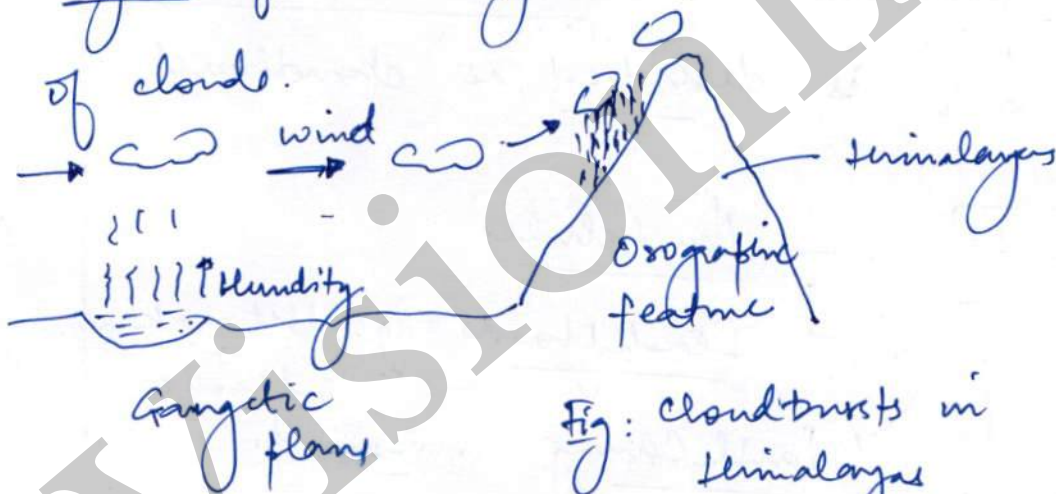 of clouds.
wind
Himalayas
Humidity
Orographic
feature
Gangetic
plans
Fig: Cloudbursts in
Himalayas
Vision